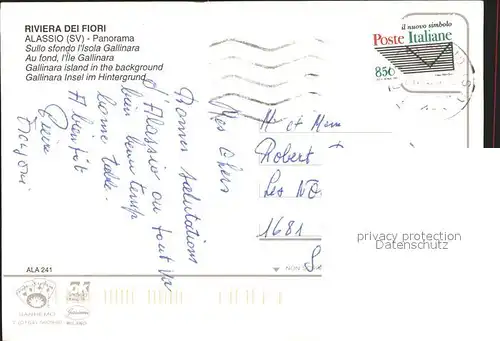 RIVIERA DEI FIORI
ALASSIO (SV) - Panorama
Sullo sfondo l'Isola Gallinara
Au fond, l'Île Gallinara
Gallinara island in the background
Gallinara Insel im Hintergrund
il nuovo simbolo
Poste Italiane
850
Mes chers
Bonnes salutations
d'Alassio où tout va
bien beau temps
bonne table.
A bientôt
M et Mme
Robert
Les
1681
privacy protection
Datenschutz
ALA 241
NON
SANREMO
MILANO